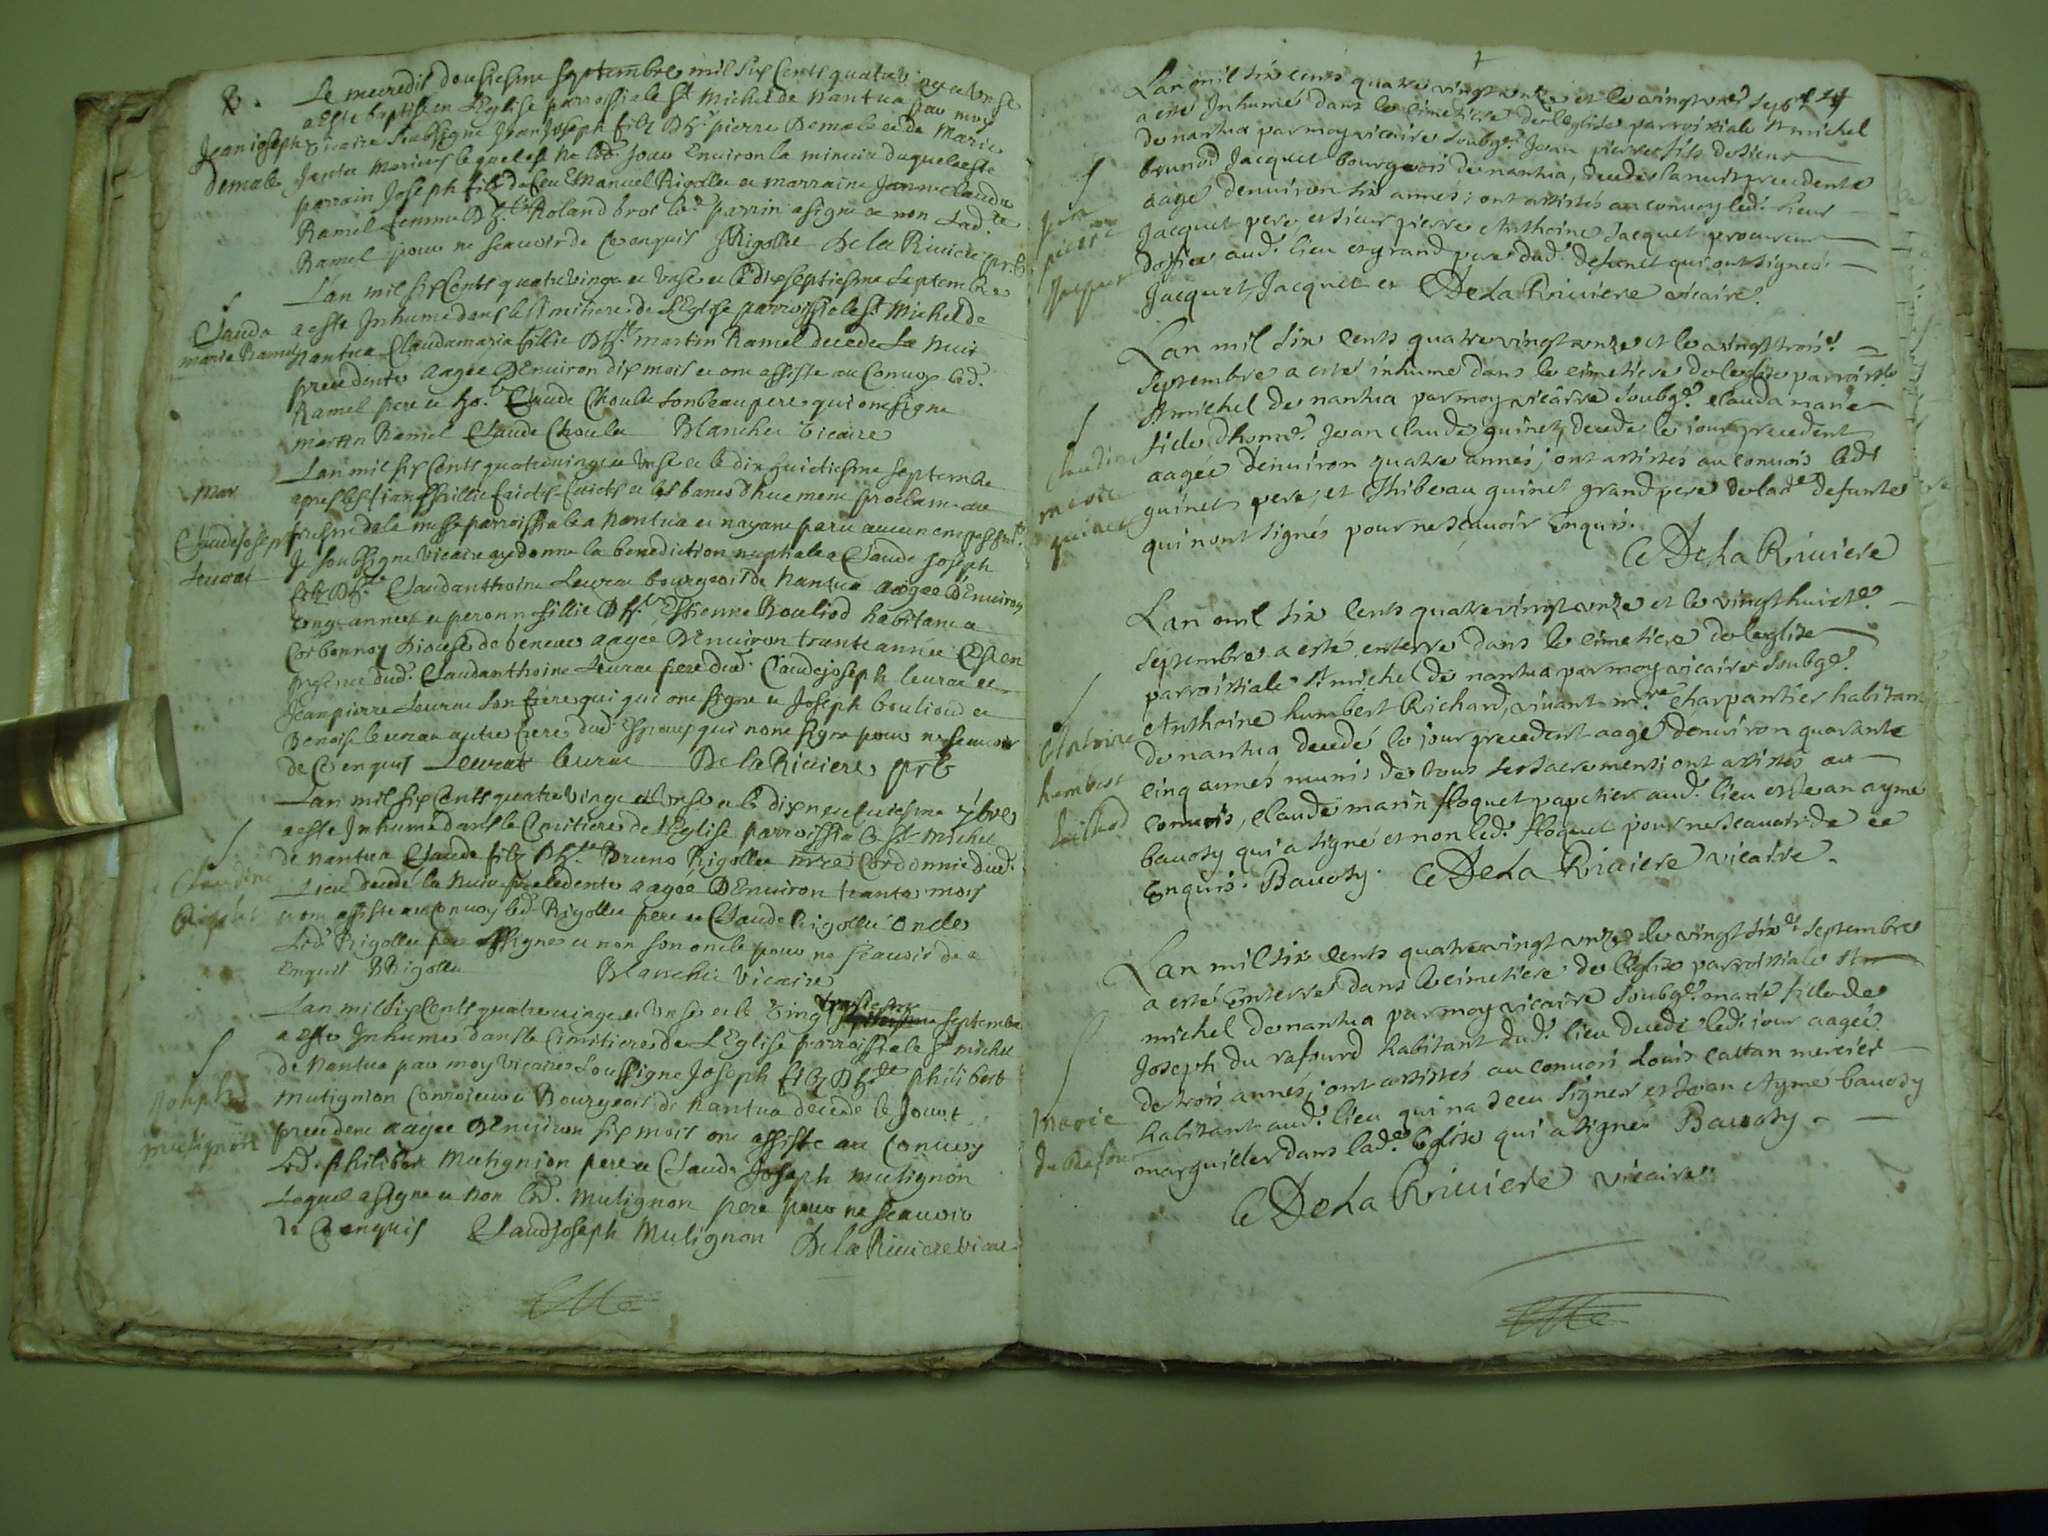 B.
Jean ioseph
demale
Le mecredit dousiesme septembre mil six Cents quatrevingt et unse
a Este baptise en L'Eglise parrossiale St Michel de Nantua par moy
vicaire soussigne Jean Joseph filz D h. pierre Demale et de Marie
lequel est Ne led. Jour Environ la minuit duquel a este
parrain Joseph filz de feu Emanuel Rigollet et marraine Jeanne Claudine
Ramel femme D h. Roland bros led. parrin a signe et non Lad.te
Ramel pour ne scauoir de Ce enquis JRigollet De la Riviere prb
Clauda
marie Ramel
Lan mil six Cents quatrevingt et unse et le dixseptiesme Septembre
a este Inhume dans le Simitiere de L'Eglise parrossiale St Michel de
Nantua Claudamaria fillie D h. martin Ramel decede La Nuit
precedente aagee D'Environ dix mois et ont assiste au Convoy led.
Ramel pere et ho. Claude Choulet son beaupere qui ont signe
martin Ramel Claude Choulet Blanchet vicaire
Mar
Claude joseph
Leurat
Lan mil six Cents quatrevingt et unse et le dix huictiesme septembre
apres les fiansaillie faictes et les bancs d'huement proclame au
prosne de la messe parrossiale a Nantua et nayant paru aucun empeschemt.
Je soussigne vicaire ay donne la benediction nuptiale a Claude Joseph
filz D h. Claudanthoine Leurat bourgeois de Nantua aagee D'Environ
vingt annees et peronne fillie D h. Estienne Bouliod habitant a
Corbonnoy Diocese de Geneue aagee D'Environ trante annee Et en
presence dud. Claudanthoine Leurat pere dud. Claudejoseph leurat et
Jeanpierre Leurat son frere qui qui ont signe et Joseph bouliod et
Benoist leurat autre frere dud. Espoux qui nont signe pour ne scauoir
de Ce enquis Leurat leurat De la Riuiere prb
Claudine
Rigolet
Lan mil six Cents quatrevingt et unse et le dixneufuiesme 7bre
a este Inhume dans le Cimitiere de L'Eglise parrossiale St Michel
de Nantua Claude filz D h. Bruno Rigollet mre Cordonnie dud.
Lieu decedé la Nuit precedente aageé D'Enuiron trante mois
et ont assiste au Convoy led. Rigollet pere et Claude Rigollet oncle
Led. Rigollet pere a signe et non son oncle pour ne scauoir de ce
Enquis BRigollet Blanchet vicaire
Joseph
mutignion
Lan mil six Cents quatrevingt et unse et le vingt troisiesme septembre
a este Inhume dans le Cimitiere de L'Eglise parrossiale St michel
de Nantua par moy vicaire Soussigne Joseph filz D h. philibert
Mutignion Conroieur et Bourgeois de Nantua decede le Jour
precedent aagee D'Enuiron six mois ont assiste au Conuoy
Led. philibert Mutignion pere et Claude Joseph mutignon
Lequel a signe et non led. Mutignon pere pour ne scauoir
de Ce enquis Claudjoseph Mutignon De la Riuiere vicaire
Jean
pierre
Jacquet
Lan mil six cents quatre vingt unze et le vingt unze. Septbre
a esté Inhumé dans le cimetiere de leglise parroissiale St michel
de nantua par moy vicaire soubgé. Jean pierre fils de sieur
brunod Jacquet bourgeois de nantua, decedé la nuit precedente
aagé denuiron six années; ont assistés au conuoy led. sieur
Jacquet pere, et sieur pierre Anthoine Jacquet procureur
doffice aud. lieu et grand pere dud. defunct qui ont signés
Jacquet, Jacquet et CDeLaRiuiere vicaire.
Claudine
marie
quinet
Lan mil six Cents quatrevingt unze et le vingt troise.
Septembre a esté inhumé dans le cimetiere de leglise parroissle
St michel de nantua par moy vicaire soubgé. clauda marie
fille d'honne. Jean claude quinet, decedé le iour precedent
aagée denuiron quatre années; ont assistés au conuois ledt
quinet pere, et Thibeau quinet grand pere de lade. defunte
qui n'ont signés pour ne scauoir Enquis.
CDeLaRiuiere
Antoine
humbert
Richard
Lan mil six Cents quatrevingt unze et le vingt huicte.
Septembre a esté enterré dans le cimetiere de leglise
parroissiale St michel de nantua par moy vicaire soubgé.
Anthoine humbert Richard, viuant mre charpantier habitant
de nantua decedé le jour precedent aagé denuiron quarante
cinq années munis de tous ses sacrements; ont assistés au
conuois, claude marin floquet papetier aud. lieu et Jean aymé
bauosy qui a signé et non led. floquet pour ne scauoir de ce
Enquis. Bauosy. CDeLaRiuiere vicaire.
Marie
du Rafour
Lan mil six cents quatrevingt unze le vingt sixe. septembre
a esté Enterré dans le cimetiere de leglise parroissiale St
michel de nantua par moy vicaire soubgé. marie fille de
Joseph du rafourd habitant dud. lieu decedé led. jour aagée
de trois années; ont assistés au conuois Louis cattan mercier
habitant aud. lieu qui na sceu signer et Jean Aymé bauosy
marguiller dans lade. Eglise qui a signé Bauosy.
CDeLaRiuiere vicaire